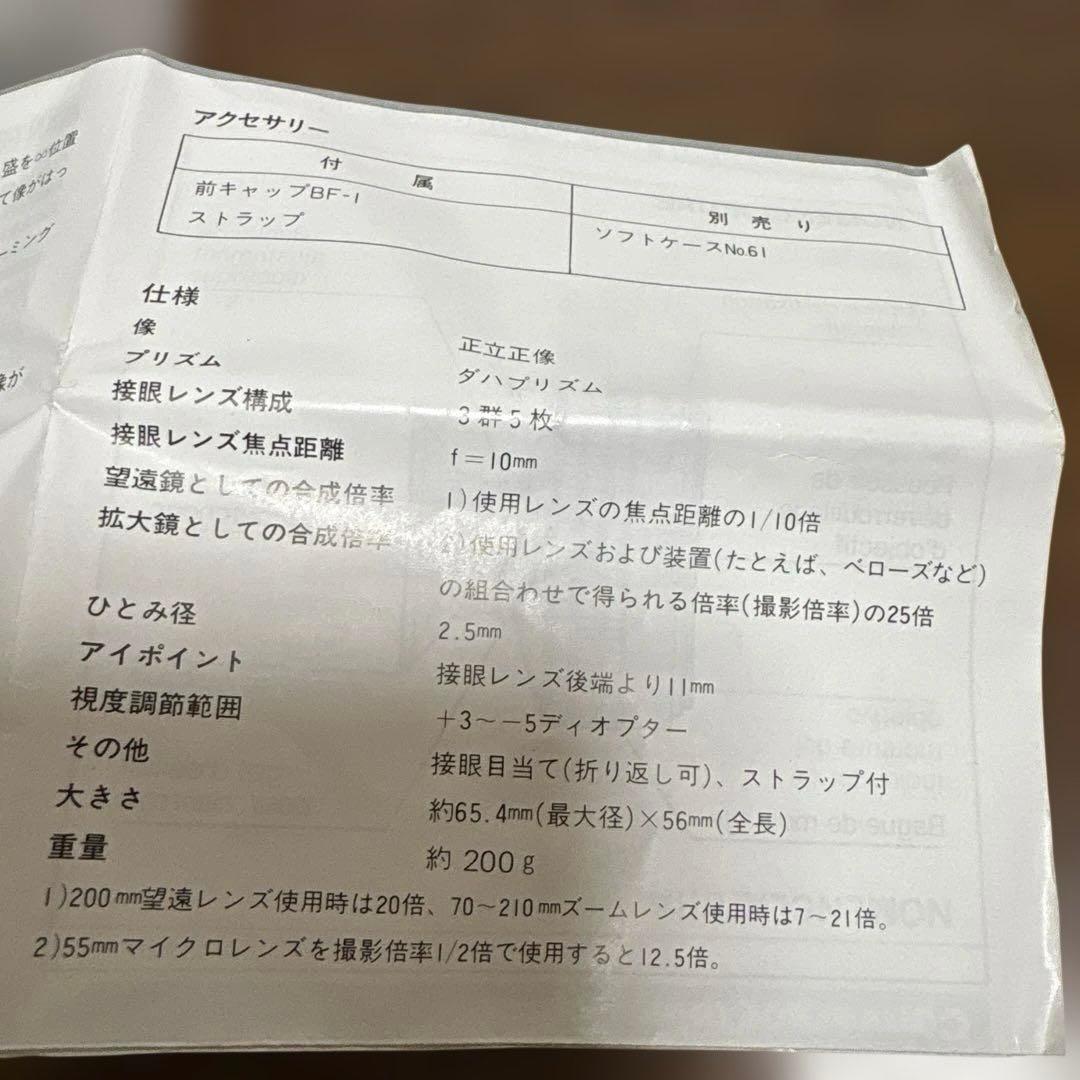 盛を∞位置
て像がはっ
ーミング
像が
アクセサリー
付 属 別売り
前キャップBF-1 ソフトケースNo.61
ストラップ
仕様
像 正立正像
プリズム ダハプリズム
接眼レンズ構成 3群5枚
接眼レンズ焦点距離 f=10mm
望遠鏡としての合成倍率 1)使用レンズの焦点距離の1/10倍
拡大鏡としての合成倍率 2)使用レンズおよび装置(たとえば、ベローズなど)
の組合わせで得られる倍率(撮影倍率)の25倍
ひとみ径 2.5mm
アイポイント 接眼レンズ後端より11mm
視度調節範囲 +3〜−5ディオプター
その他 接眼目当て(折り返し可)、ストラップ付
大きさ 約65.4mm(最大径)×56mm(全長)
重量 約200g
1)200mm望遠レンズ使用時は20倍、70〜210mmズームレンズ使用時は7〜21倍。
2)55mmマイクロレンズを撮影倍率1/2倍で使用すると12.5倍。